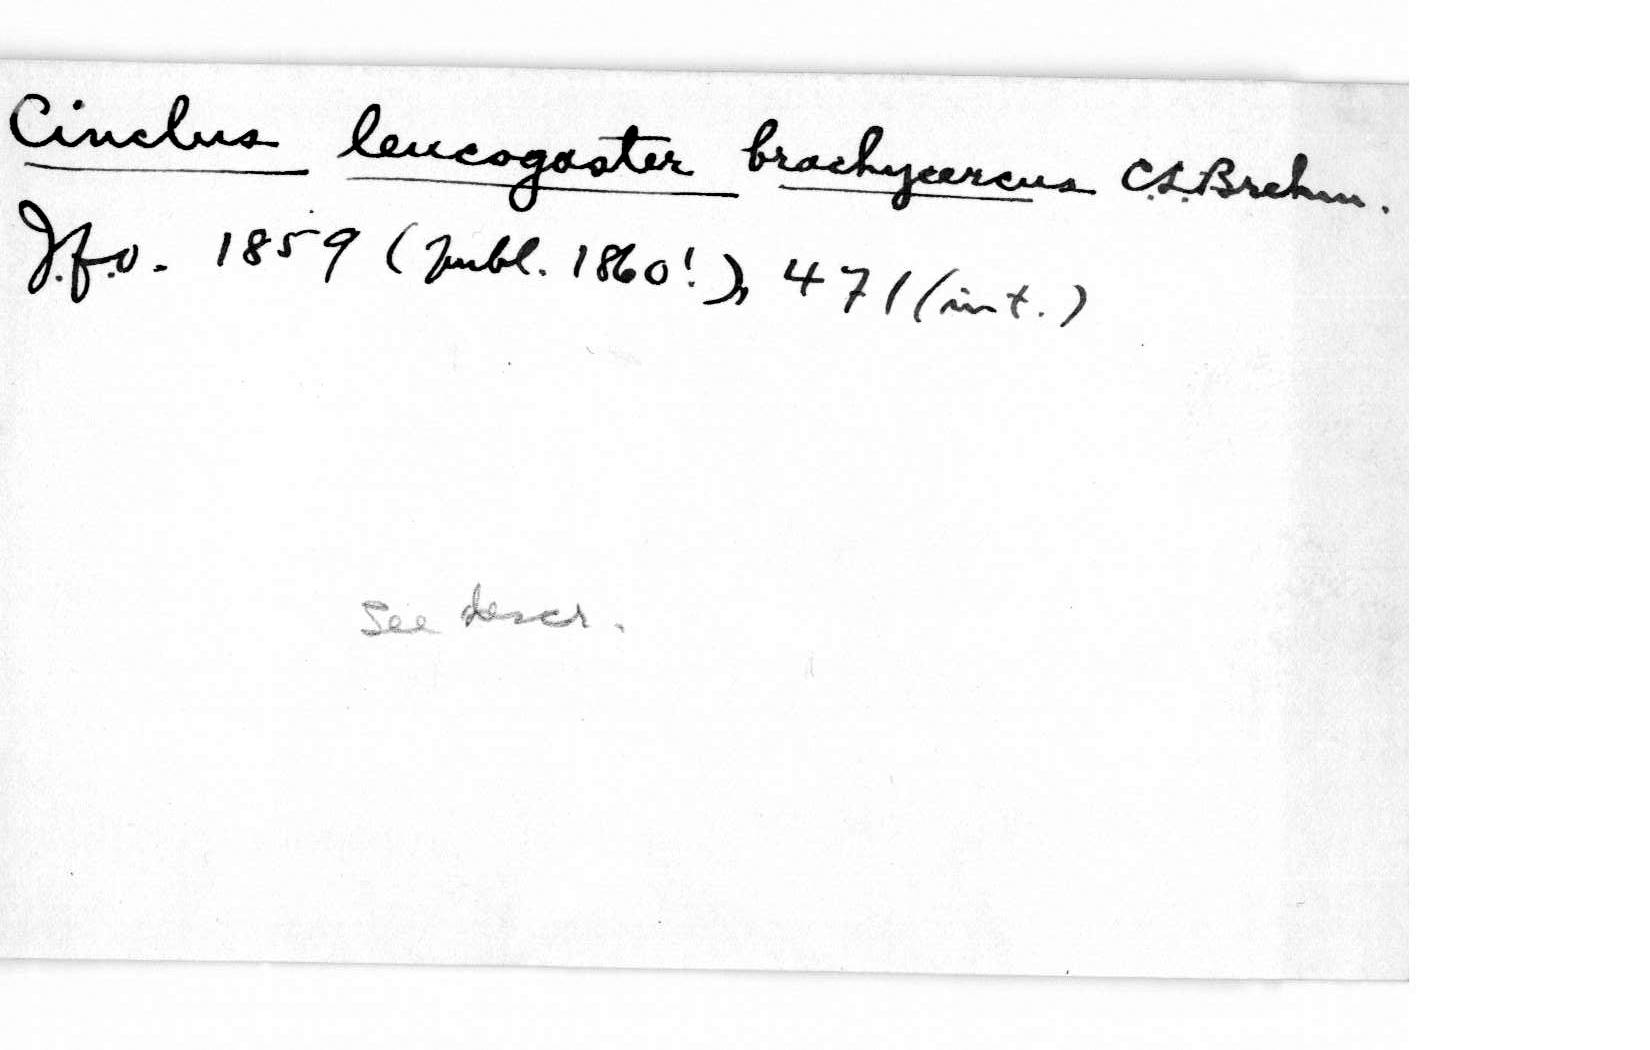 Cinclus leucogaster brachycercus C.L.Brehm.
J.f.o. 1859 (publ. 1860!), 471 (int.)
See descr.